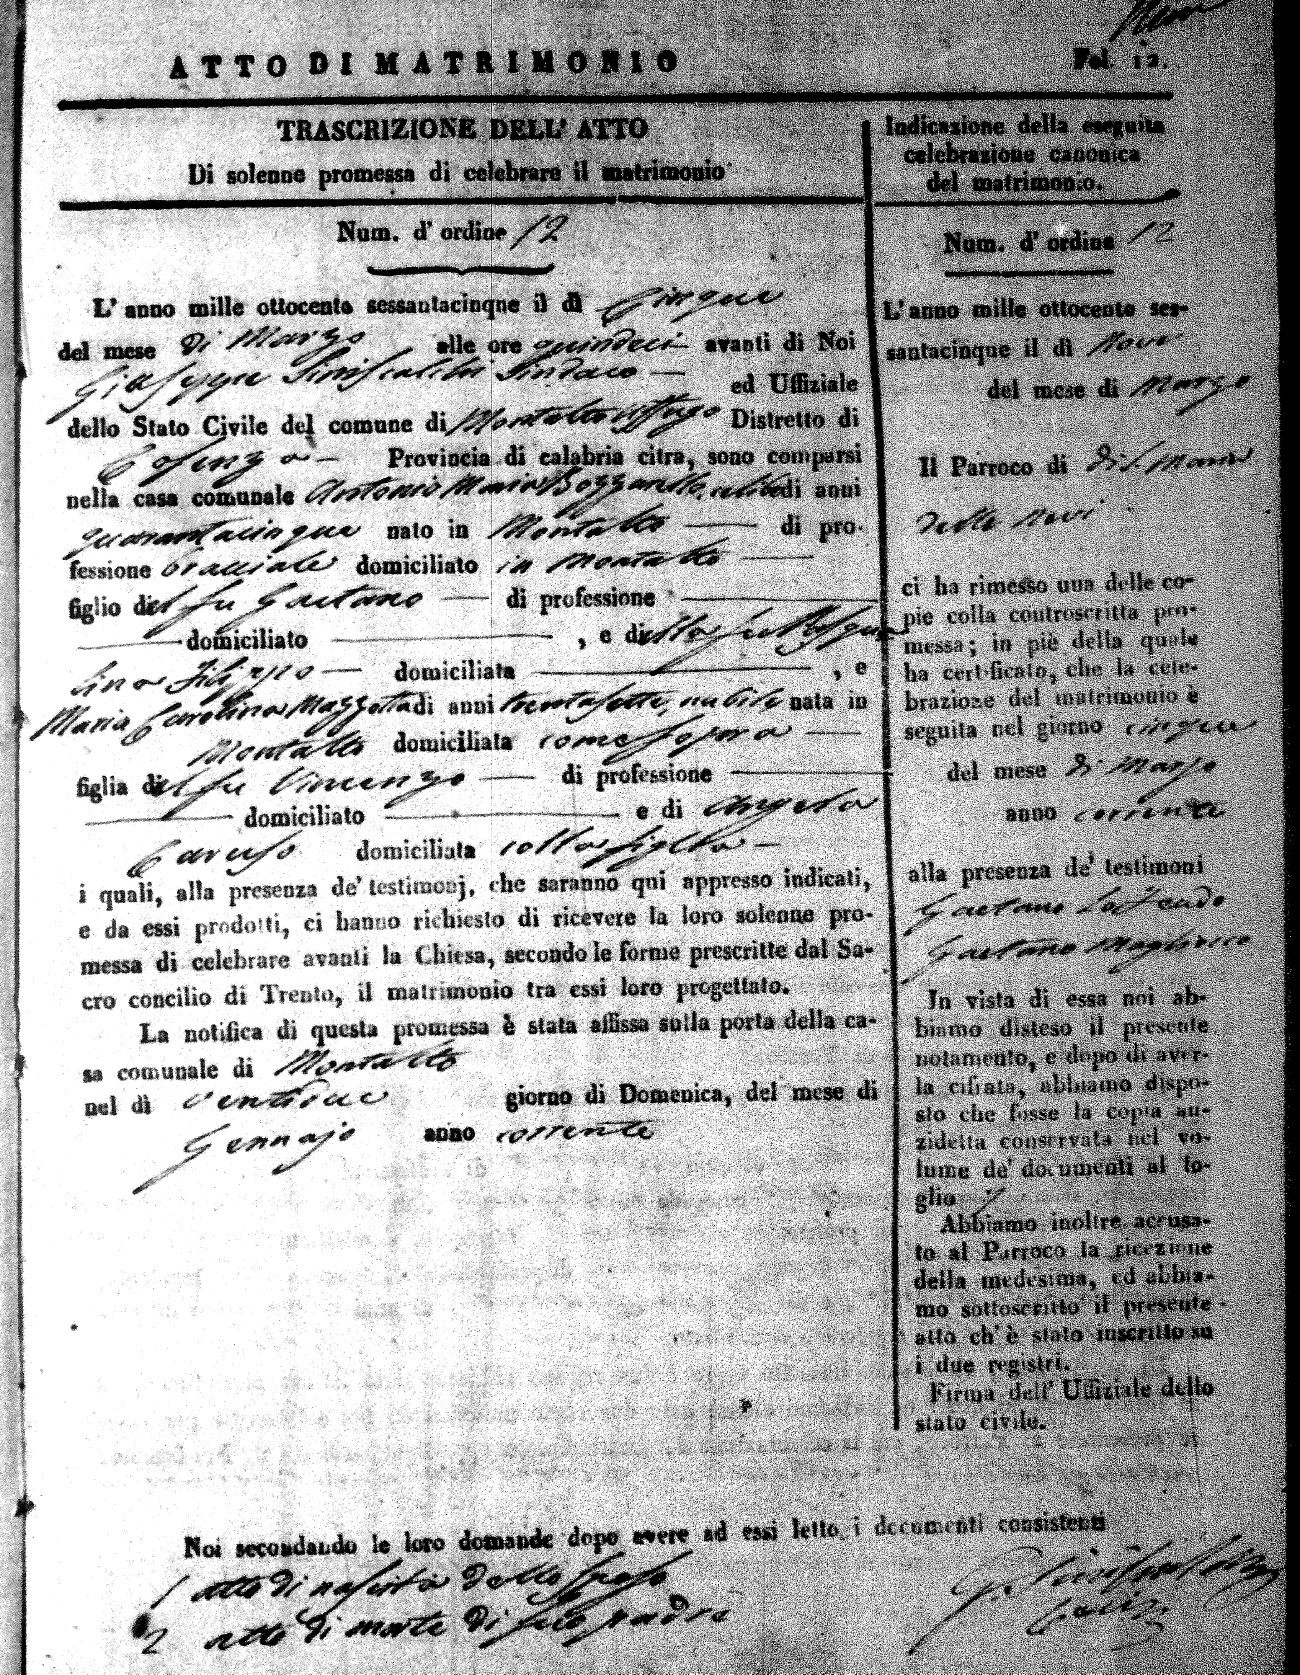 ATTO DI MATRIMONIO
Fol. 12.
TRASCRIZIONE DELL' ATTO
Di solenne promessa di celebrare il matrimonio
Num. d' ordine 12
L' anno mille ottocento sessantacinqne il dì Cinque
del mese di Marzo alle ore quindeci avanti di Noi
Giuseppe Siniscalchi Sindaco ed Uffiziale
dello Stato Civile del comune di Montalto Uffugo Distretto di
Cosenza Provincia di calabria citra, sono comparsi
nella casa comunale Antonio Maria celibe di anni
quarantacinque nato in Montalto di pro-
fessione bracciale domiciliato in Montalto
figlio del fu Gaetano di professione
domiciliato , e della fu Pasqua
lina Filippo domiciliata , e
Maria Carolina Mazzotta di anni trentasette, nubile nata in
Montalto domiciliata come sopra
figlia del fu Vincenzo di professione
domiciliato e di Angela
Caruso domiciliata colla figlia
i quali, alla presenza de' testimonj, che saranno qui appresso indicati,
e da essi prodotti, ci hanno richiesto di ricevere la loro solenne pro-
messa di celebrare avanti la Chiesa, secondo le forme prescritte dal Sa-
cro concilio di Trento, il matrimonio tra essi loro progettato.
La notifica di questa promessa è stata affissa sulla porta della ca-
sa comunale di Montalto
nel dì ventidue giorno di Domenica, del mese di
Gennajo anno corrente
Indicazione della eseguita
celebrazione canonica
del matrimonio.
Num. d' ordine 12
L' anno mille ottocento ses-
santacinque il dì Nove
del mese di Marzo
Il Parroco di di S. Maria
della Nevi
ci ha rimesso una delle co-
pie colla controscritta pro-
messa; in piè della quale
ha certificato, che la cele-
brazione del matrimonio è
seguita nel giorno cinque
del mese di Marzo
anno corrente
alla presenza de' testimoni
Gaetano Lo Feudo
Gaetano Magliocco
In vista di essa noi ab-
biamo disteso il presente
notamento, e dopo di aver-
la cifrata, abbiamo dispo-
sto che fosse la copia an-
zidetta conservata nel vo-
lume de' documenti al fo-
glio 7
Abbiamo inoltre accusa-
to al Parroco la ricezione
della medesima, ed abbia-
mo sottoscritto il presente
atto ch' è stato inscritto su
i due registri.
Firma dell' Uffiziale dello
stato civile.
Noi secondando le loro domande dopo avere ad essi letto i documenti consistenti
1 atto di nascita dello sposo
2 atto di morte di suo padre
G. Siniscalchi